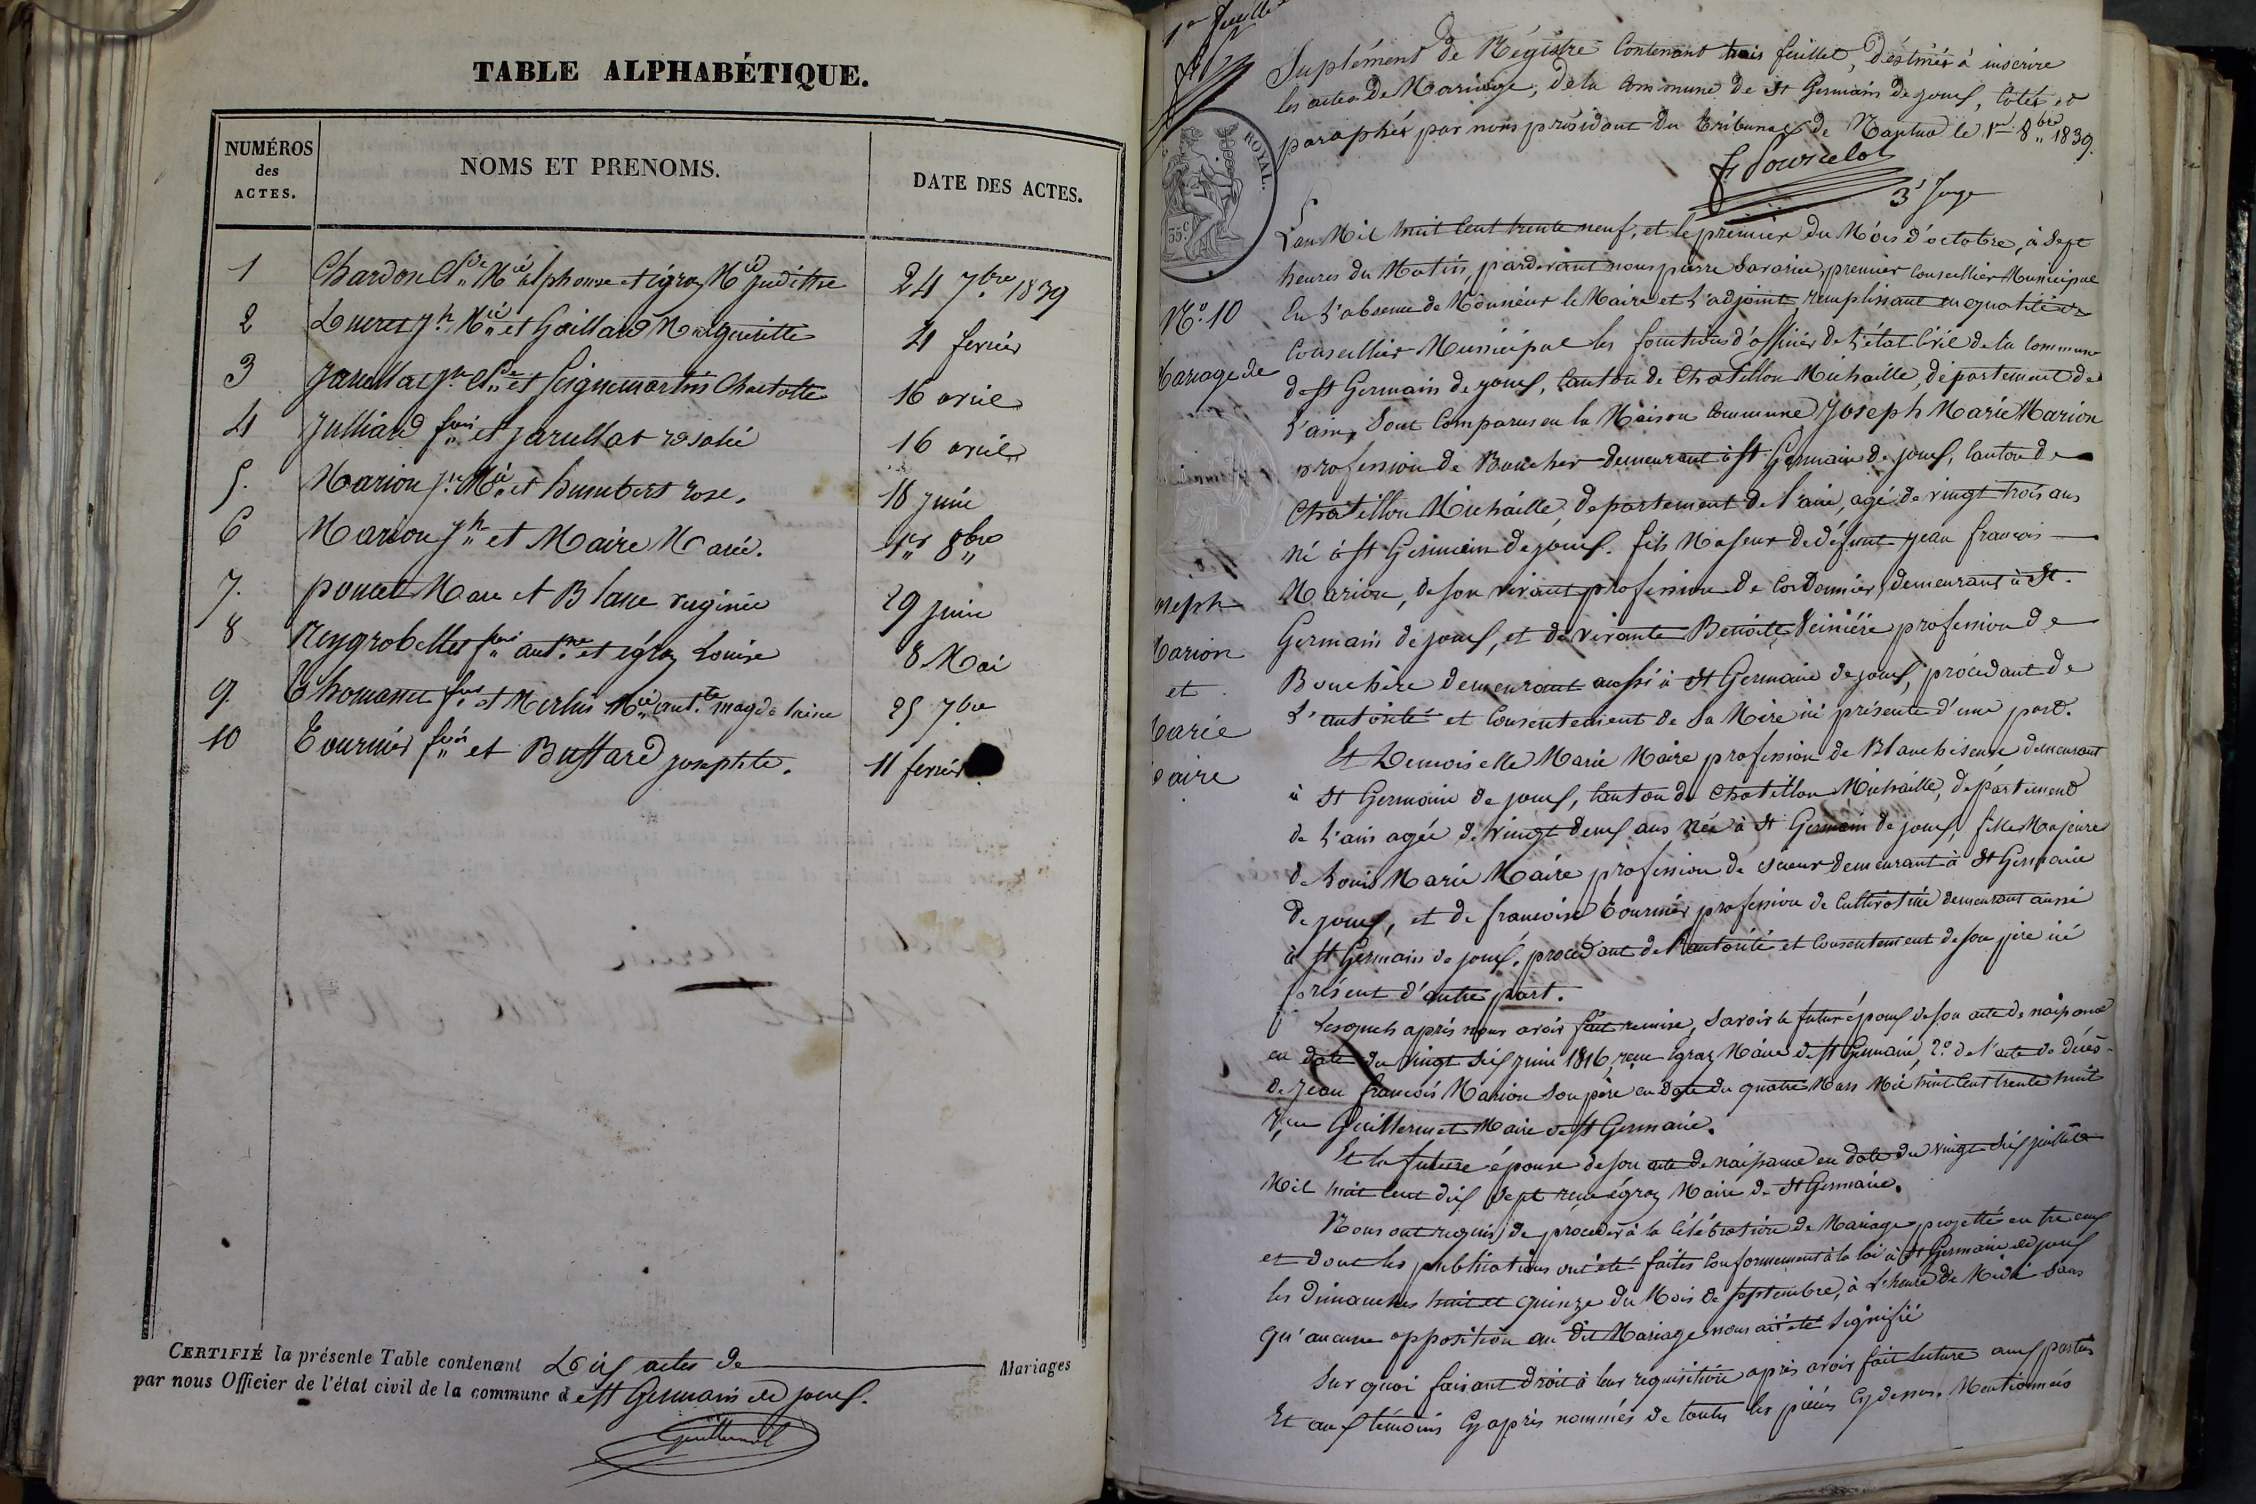 TABLE ALPHABÉTIQUE.
NUMÉROS des ACTES.
NOMS ET PRENOMS.
DATE DES ACTES.
1 Chardon Cl.de M.ie alphonse et égraz M.ie judithe 24 7.bre 1839
2 j.h M.ie et Gaillard Marguerite 4 fevrier
3 jarullat j.n Cl.de et Seignemartin Charlotte 16 avril
4 julliard f.ois et jarullat rosalie 16 avril
5. Marion j.h M.ie et humbert rose. 18 juin
6 Marion j.h et Maire Marie. 1.er 8.bre
7. poncet Marc et Blanc virginie 29 juin
8 Reygrobellet f.ois ant.ne et égraz Louise 8 Mai
9. Thomasset f.ois et Merlin M.ie ant.te magdelaine 25 7.bre
10 Tournier f.ois et Bussard josephte. 11 fevrier
CERTIFIÉ la présente Table contenant Dix actes de Mariages
par nous Officier de l'état civil de la commune de St Germain de joux.
Guillermet
1er feuillet
Suplément de Régistre Contenant trois feuillet, déstinés à inscrire
les actes De Mariage, de la Commune de St Germain de joux, Cotés et
paraphés par nous présidant du Tribunal de Nantua le 1er 8.bre 1839.
3e juge
ROYAL.
35 c
L'an Mil huit Cent trente neuf, et le prémier du Mois d'octobre, à Sept
heures du Matin, pardevant nous pierre Savarin, premier Conseillier Municipal
En l'absence de Monsieur le Maire et l'adjoint, remplissant en qualité de
Conseillier Municipal les fonctions d'officier de l'état Civil de la Commune
de St Germain de joux, Canton de Chatillon Michaille, département de
l'ain, Sont Comparus en la Maison Commune Joseph Marie Marion
profession de Boucher demeurant à St Germain de joux, Canton de
Chatillon Michaille, département de l'ain, agé de vingt trois ans
né à St Germain de joux. fils Majeur de défunt jean francois
Marion, de son vivant profession de Cordonnier, demeurant à St.
Germain de joux, et de vivante Benoite profession de
Bouchère demeurant aussi à St Germain de joux, procédant de
L'autorité et Consentement de Sa Mère ici présente d'une part.
Et Demoiselle Marie Maire profession de Blanchiseuse demeurant
à St Germain de joux, Canton de Chatillon Michaille, départemend
de l'ain agée de vingt deux ans Née à St Germain de joux, fille Majeure
de Louis Marie Maire profession de scieur demeurant à St Germain
de joux, et de francoise Tournier profession de Cultivatrice demeurant aussi
à St Germain de joux. procédant de l'autorité et Consentement de son père ici
présent d'autre part.
Lesquels après nous avoir fait remise, Savoir le futur époux de son acte de naissance
en date du vingt Six juin 1816, recue égraz Maire de St Germain, 2.o de l'acte de décès
de jean francois Marion Son père en date du quatre Mars Mil huit Cent trente huit
recu Guillermet Maire de St Germain.
Et la future épouse de son acte de naissance en date du vingt Six juillet
Mil huit Cent dix Sept recue égraz Maire de St Germain.
Nous ont requis de procéder à la Célébration de Mariage projetté entre eux
et dont les publications ont été faites Conformement à la loi à St Germain de joux
les dimanches huit et quinze du Mois de septembre, à l'heure de Midi Sans
qu'aucune opposition au dit Mariage nous ait été Signifié
Sur quoi faisant droit à leur requisition après avoir fait lecture aux parties
Et aux témoins Cy après nommés de toutes les pièces Cy dessus. Mentionnées
N.o 10
Mariage de
Joseph
Marion
et
Marie
Maire